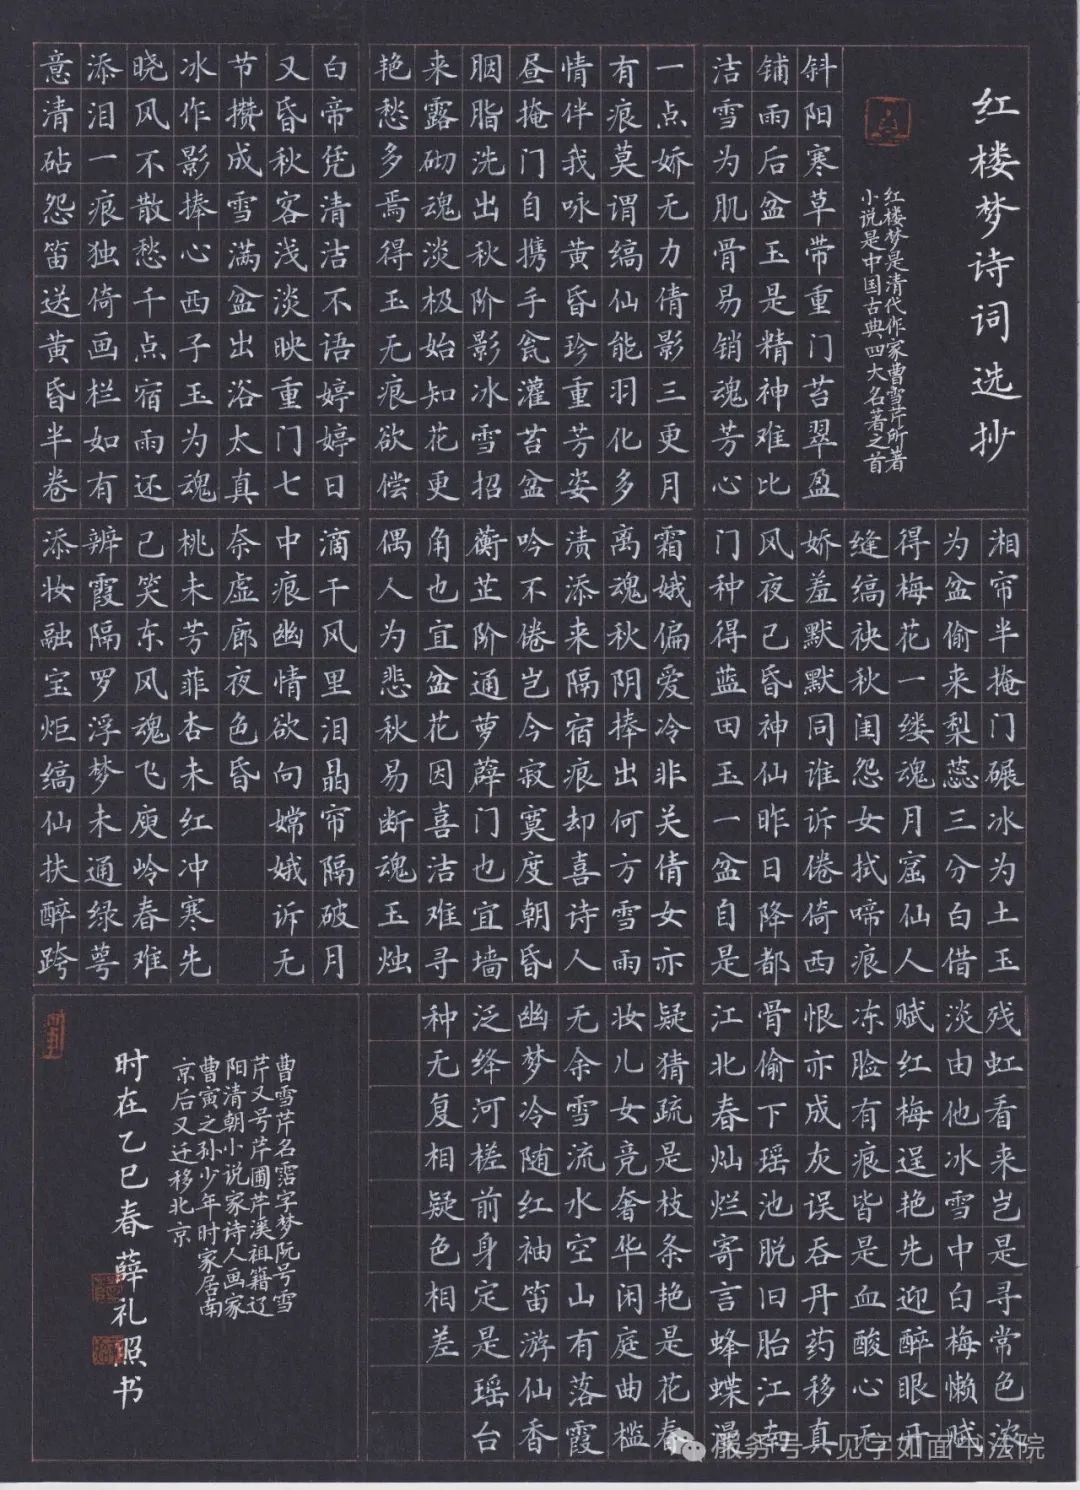 红楼梦诗词选抄
红楼梦是清代作家曹雪芹所著
小说是中国古典四大名著之首
斜阳寒草带重门苔翠盈
铺雨后盆玉是精神难比
洁雪为肌骨易销魂芳心
一点娇无力倩影三更月
有痕莫谓缟仙能羽化多
情伴我咏黄昏珍重芳姿
昼掩门自携手瓮灌苔盆
胭脂洗出秋阶影冰雪招
来露砌魂淡极始知花更
艳愁多焉得玉无痕欲偿
白帝凭清洁不语婷婷日
又昏秋客浅淡映重门七
节攒成雪满盆出浴太真
冰作影捧心西子玉为魂
晓风不散愁千点宿雨还
添泪一痕独倚画栏如有
意清砧怨笛送黄昏半卷
湘帘半掩门碾冰为土玉
为盆偷来梨蕊三分白借
得梅花一缕魂月窟仙人
缝缟袂秋闺怨女拭啼痕
娇羞默默同谁诉倦倚西
风夜已昏神仙昨日降都
门种得蓝田玉一盆自是
霜娥偏爱冷非关倩女亦
离魂秋阴捧出何方雪雨
渍添来隔宿痕却喜诗人
吟不倦岂今寂寞度朝昏
蘅芷阶通萝薜门也宜墙
角也宜盆花因喜洁难寻
偶人为悲秋易断魂玉烛
滴干风里泪晶帘隔破月
中痕幽情欲向嫦娥诉无
奈虚廊夜色昏
桃未芳菲杏未红冲寒先
已笑东风魂飞庾岭春难
辨霞隔罗浮梦未通绿萼
添妆融宝炬缟仙扶醉跨
残虹看来岂是寻常色浓
淡由他冰雪中白梅懒赋
赋红梅逞艳先迎醉眼开
冻脸有痕皆是血酸心无
恨亦成灰误吞丹药移真
骨偷下瑶池脱旧胎江南
江北春灿烂寄言蜂蝶漫
疑猜疏是枝条艳是花春
妆儿女竞奢华闲庭曲槛
无余雪流水空山有落霞
幽梦冷随红袖笛游仙香
泛绛河槎前身定是瑶台
种无复相疑色相差
曹雪芹名霑字梦阮号雪
芹又号芹圃芹溪祖籍辽
阳清朝小说家诗人画家
曹寅之孙少年时家居南
京后又迁移北京
时在乙巳春薛礼照书
服务号·见字如面书法院